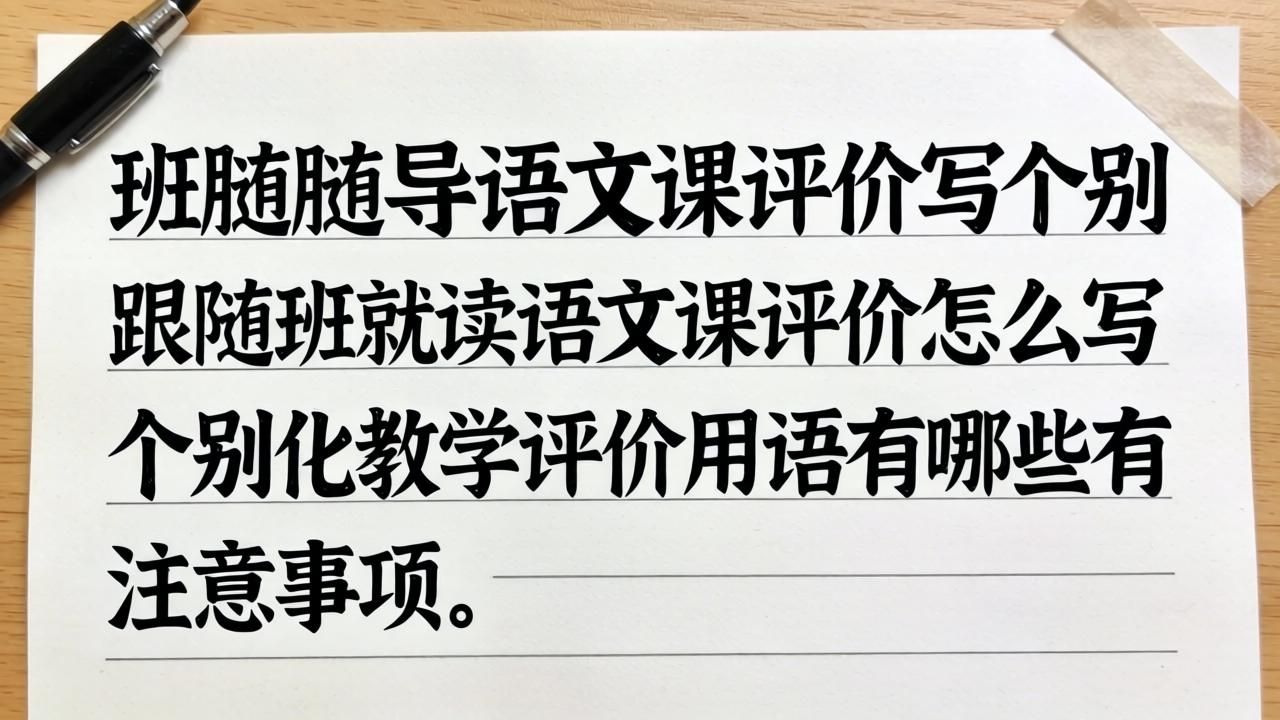 班随随导语文课评价写个别
跟随班就读语文课评价怎么写
个别化教学评价用语有哪些有
注意事项。